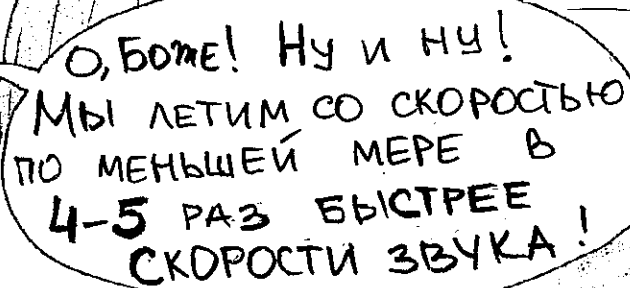 О, БОЖЕ! НУ И НУ!
МЫ ЛЕТИМ СО СКОРОСТЬЮ
ПО МЕНЬШЕЙ МЕРЕ В
4-5 РАЗ БЫСТРЕЕ
СКОРОСТИ ЗВУКА!